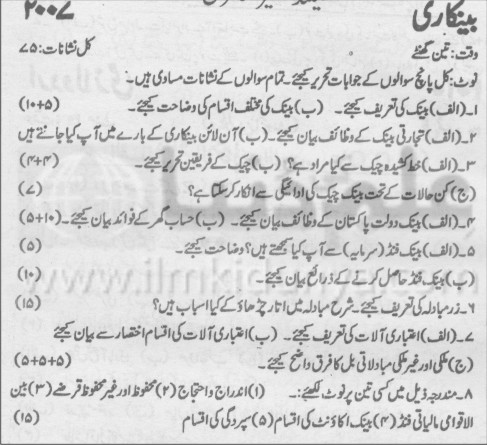 بینکاری
۲۰۰۷
وقت: تین گھنٹے
کل نشانات: ۷۵
نوٹ: کل پانچ سوالوں کے جوابات تحریر کیجئے۔ تمام سوالوں کے نشانات مساوی ہیں۔
۱۔ (الف) بینک کی تعریف کیجئے۔ (ب) بینک کی مختلف اقسام کی وضاحت کیجئے۔ (۵+۱۰)
۲۔ (الف) تجارتی بینک کے وظائف بیان کیجئے۔ (ب) آن لائن بینکاری کے بارے میں آپ کیا جانتے ہیں
۳۔ (الف) خط کشیدہ چیک سے کیا مراد ہے؟ (ب) چیک کے فریقین تحریر کیجئے۔ (۴+۴)
(ج) کن حالات کے تحت بینک چیک کی ادائیگی سے انکار کر سکتا ہے؟ (۷)
۴۔ (الف) بینک دولت پاکستان کے وظائف بیان کیجئے۔ (ب) حساب گھر کے فوائد بیان کیجئے۔ (۱۰+۵)
۵۔ (الف) بینک فنڈ (سرمایہ) سے آپ کیا سمجھتے ہیں؟ وضاحت کیجئے۔ (۵)
(ب) بینک فنڈ حاصل کرنے کے ذرائع بیان کیجئے۔ (۱۰)
۶۔ زرمبادلہ کی تعریف کیجئے۔ شرح مبادلہ میں اتار چڑھاؤ کے کیا اسباب ہیں؟ (۱۵)
۷۔ (الف) اعتباری آلات کی تعریف کیجئے۔ (ب) اعتباری آلات کی اقسام اختصار سے بیان کیجئے
(ج) ملکی اور غیر ملکی مبادلاتی بل کا فرق واضح کیجئے۔ (۵+۵+۵)
۸۔ مندرجہ ذیل میں کسی تین پر نوٹ لکھئے:۔ (۱) اندراج و احتجاج (۲) محفوظ اور غیر محفوظ قرضے (۳) بین
الاقوامی مالیاتی فنڈ (۴) بینک اکاؤنٹ کی اقسام (۵) سپردگی کی اقسام (۱۵)